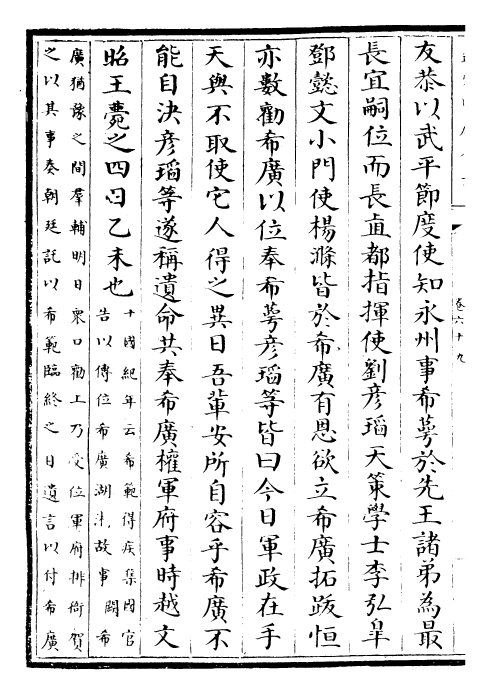 卷六十九
友恭以武平節度使知永州事希萼於先王諸弟為最
長宜嗣位而長直都指揮使劉彥瑫天策學士李弘臯
鄧懿文小門使楊滌皆於希廣有恩欲立希廣拓跋恒
亦數勸希廣以位奉希萼彥瑫等皆曰今日軍政在手
天與不取使它人得之異日吾輩安所自容乎希廣不
能自決彥瑫等遂稱遺命共奉希廣權軍府事時越文
昭王薨之四日乙未也
十國紀年云希範得疾集國官
告以傳位希廣湖故事闕希
廣猶豫之間羣輔明日衆口勸上乃受位軍府排衙賀
之以其事奏朝廷託以希範臨終之日遺言以付希廣